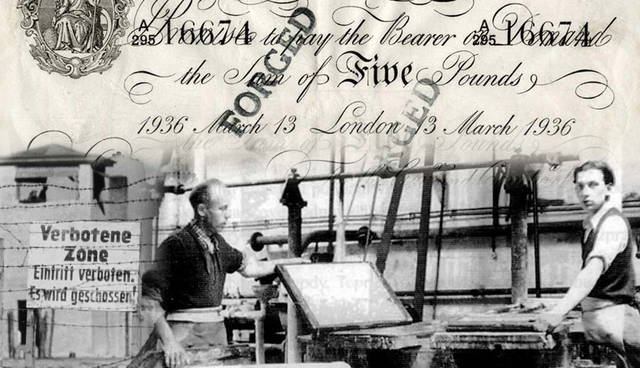 A/295 16674
A/295 16674
Promise to pay the Bearer on Demand
the Sum of Five Pounds
1936 March 13 London 13 March 1936
FORGED
FORGED
Verbotene
Zone
Eintritt verboten.
Es wird geschossen!